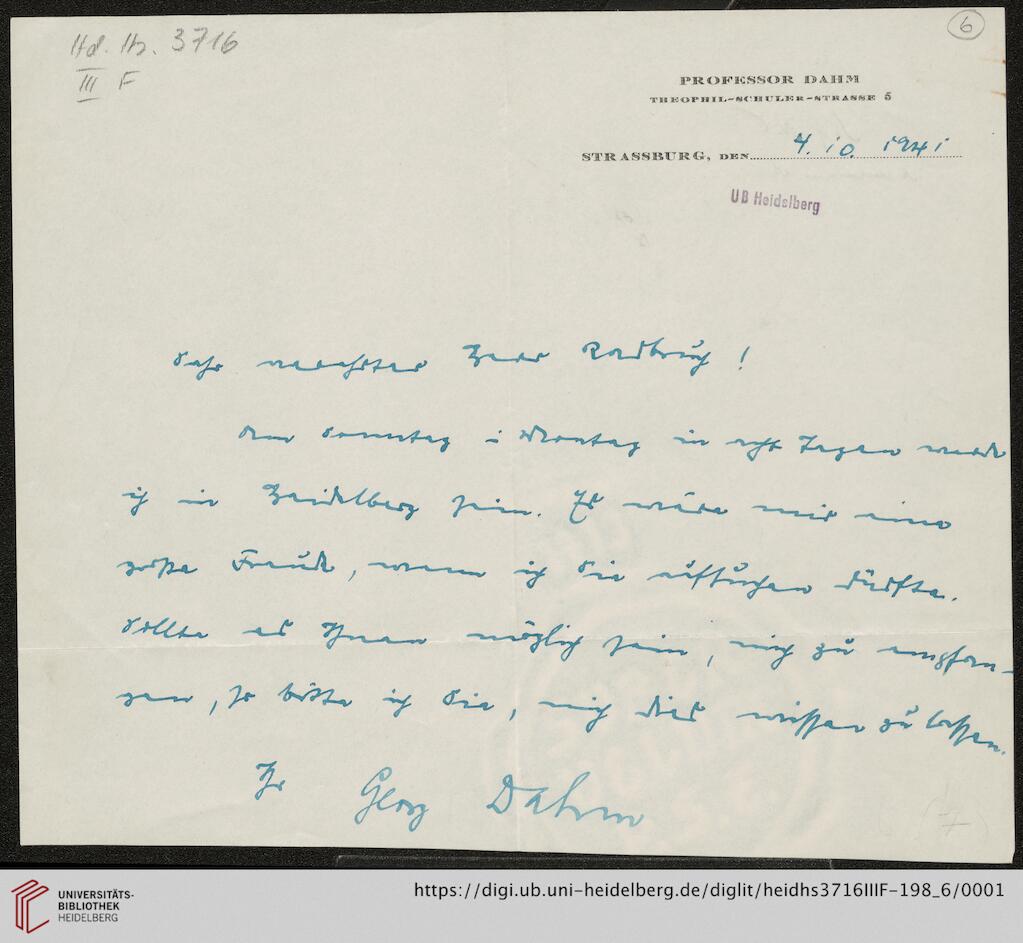 Hd. Hs. 3716
III F
6
PROFESSOR DAHM
THEOPHIL-SCHULER-STRASSE 5
STRASSBURG, DEN 4. 10. 1941
UB Heidelberg
Sehr verehrter Herr Radbruch!
Am Sonntag u Montag in acht Tagen werde
ich in Heidelberg sein. Es wäre mir eine
große Freude, wenn ich Sie aufsuchen dürfte.
Sollte es Ihnen möglich sein, mich zu empfan-
gen, so bitte ich Sie, mich dies wissen zu lassen.
Ihr Georg Dahm
UNIVERSITÄTS-
BIBLIOTHEK
HEIDELBERG
https://digi.ub.uni-heidelberg.de/diglit/heidhs3716IIIF-198_6/0001